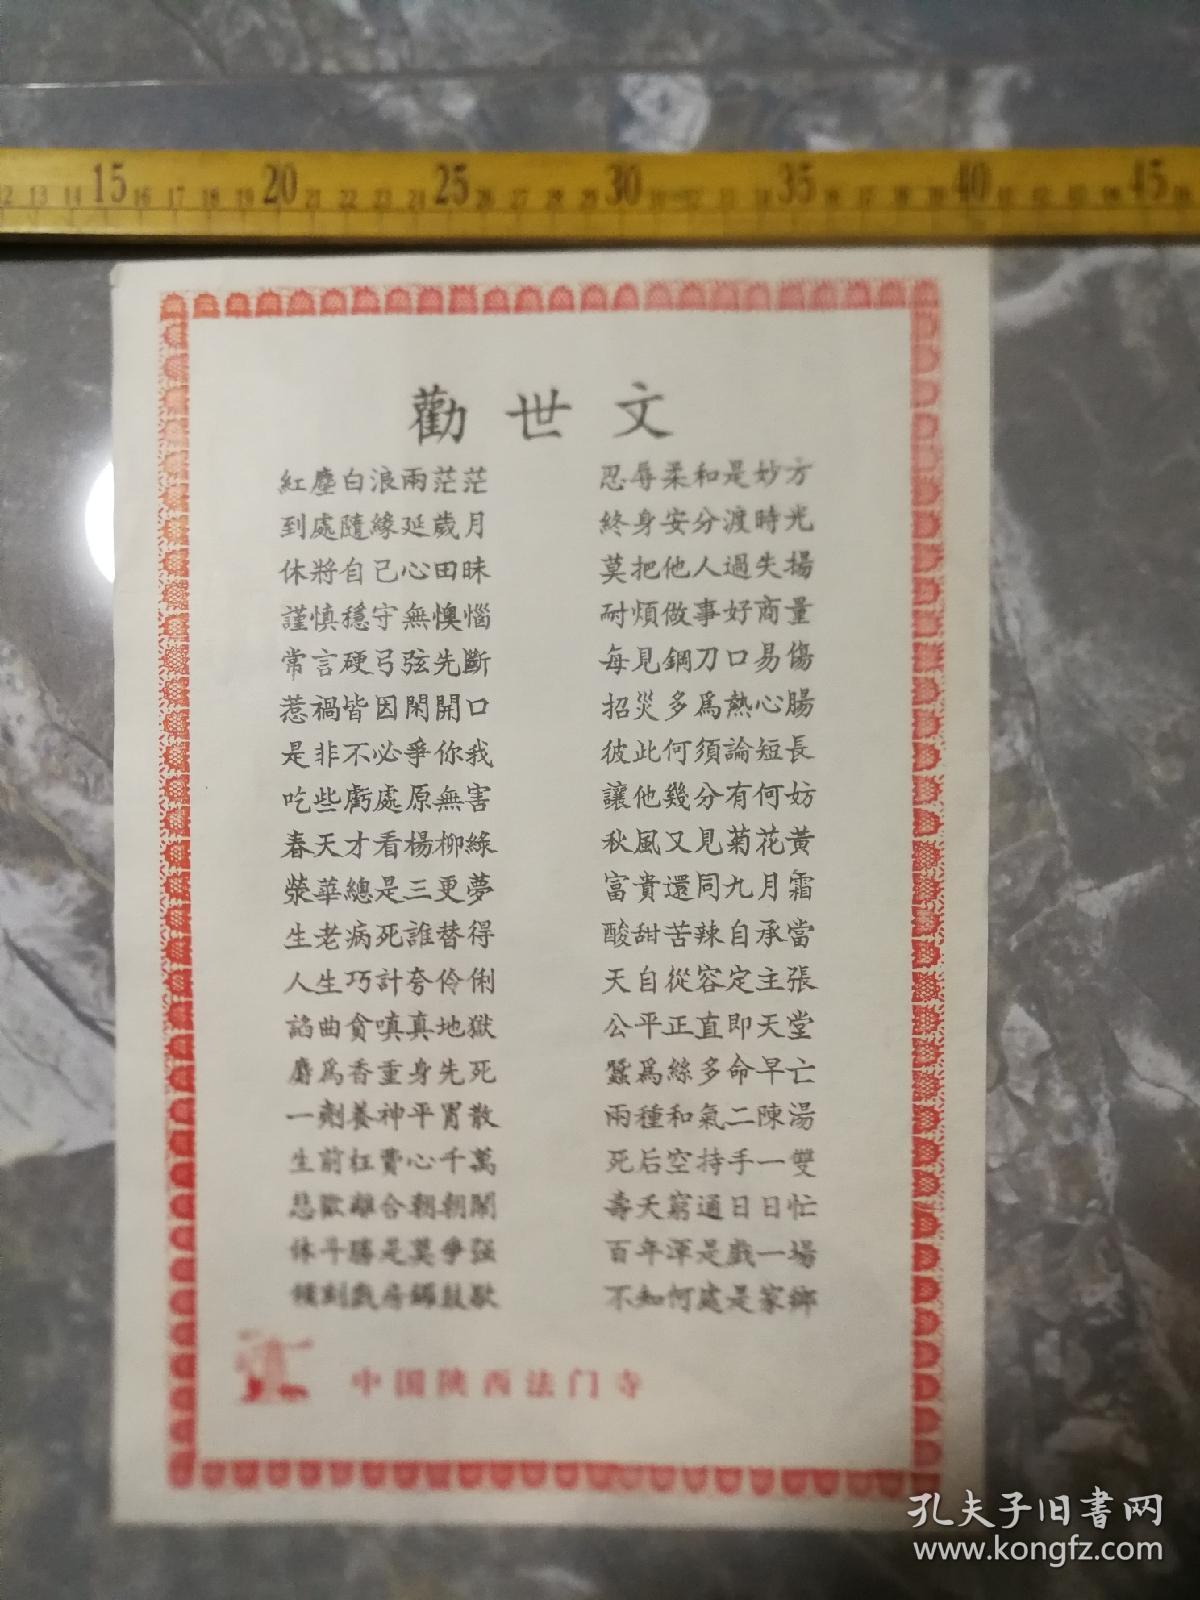 12 13 14 15 16 17 18 19 20 21 22 23 24 25 26 27 28 29 30 35 40 45
勸世文
紅塵白浪兩茫茫 忍辱柔和是妙方
到處隨緣延歲月 終身安分渡時光
休將自己心田昧 莫把他人過失揚
謹慎穩守無懊惱 耐煩做事好商量
常言硬弓弦先斷 每見鋼刀口易傷
惹禍皆因閑開口 招災多爲熱心腸
是非不必爭你我 彼此何須論短長
吃些虧處原無害 讓他幾分有何妨
春天才看楊柳綠 秋風又見菊花黃
榮華總是三更夢 富貴還同九月霜
生老病死誰替得 酸甜苦辣自承當
人生巧計夸伶俐 天自從容定主張
諂曲貪嗔真地獄 公平正直即天堂
麝爲香重身先死 蠶爲絲多命早亡
一劑養神平胃散 兩種和氣二陳湯
生前枉費心千萬 死后空持手一雙
悲歡離合朝朝鬧 壽夭窮通日日忙
休斗勝是莫爭强 百年渾是戲一場
頃刻戲房鑼鼓歇 不知何處是家鄉
中国陕西法门寺
孔夫子旧书网
www.kongfz.com